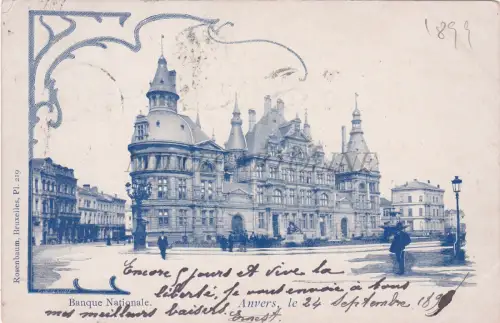 1899
Rosenbaum, Bruxelles, Pl. 219
Encore 5 jours et vive la
Banque Nationale. liberté, je vous envoie à tous
Anvers, le 24 Septembre 189
mes meilleurs baisers.
Ernest